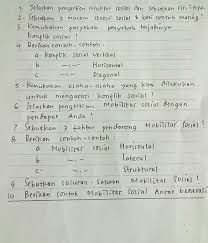 1. Jelaskan pengertian struktur sosial dan sebutkan ciri-cirinya.
2. Sebutkan 3 macam struktur sosial & beri contoh masing²
3. Kemukakan penyebab-penyebab terjadinya
Konflik sosial !
4. Berikan contoh-contoh :
a. Konflik sosial Vertikal
b. -..- Horisontal
c. -..- Diagonal
5. Kemukakan usaha-usaha yang bisa dilakukan
untuk mengatasi konflik sosial !
6. Jelaskan pengertian Mobilitas sosial dengan
pendapat Anda !
7 Sebutkan 3 faktor pendorong Mobilitas Sosial !
8. Berikan contoh-contoh :
a Mobilitas sosial Horisontal
b -..- lateral
c -..- Struktural
9 Sebutkan saluran-saluran Mobilitas Sosial !
10 Berikan contoh Mobilitas sosial Antar Generasi